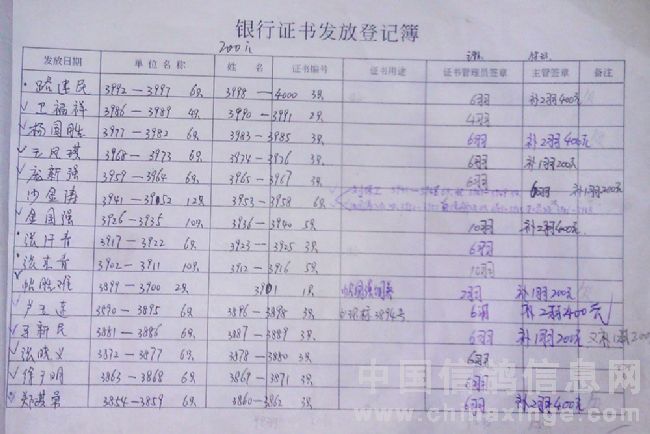 银行证书发放登记簿
200元
发放日期 单位名称 姓名 证书编号 证书用途 证书管理员签章 主管签章 备注
路建民 3992—3997 6只 3998—4000 3只 6羽 补2羽400元
卫福祥 3986—3989 4只 3990—3991 2只 4羽
杨国胜 3977—3982 6只 3983—3985 3只 6羽 补2羽400元
3968—3973 6只 3只 6羽 补1羽200元
庞新强 3959—3964 6只 3965—3967 3只 6羽
沙金涛 3941—3952 12只 3953—3958 6只 6羽 补1羽200元
金国强 3926—3935 10只 3936—3940 5只 10羽
张汗青 3917—3922 6只 3923—3925 3只 6羽
张来香 3902—3911 10只 3912—3916 5只 10羽
3899—3900 2只 3901 1只 2羽 补1羽200元
3890—3895 6只 3896—3898 3只 3894号 6羽 补2羽400元
王新民 3881—3886 6只 3887—3889 3只 6羽 补1羽200元
张晓义 3872—3877 6只 3878—3880 3只 6羽
徐子明 3863—3868 6只 3869—3871 3只 6羽
郑其荣 3854—3859 6只 3860—3862 3只 6羽 补2羽400元
中国信鸽信息网
www.chinaxinge.com